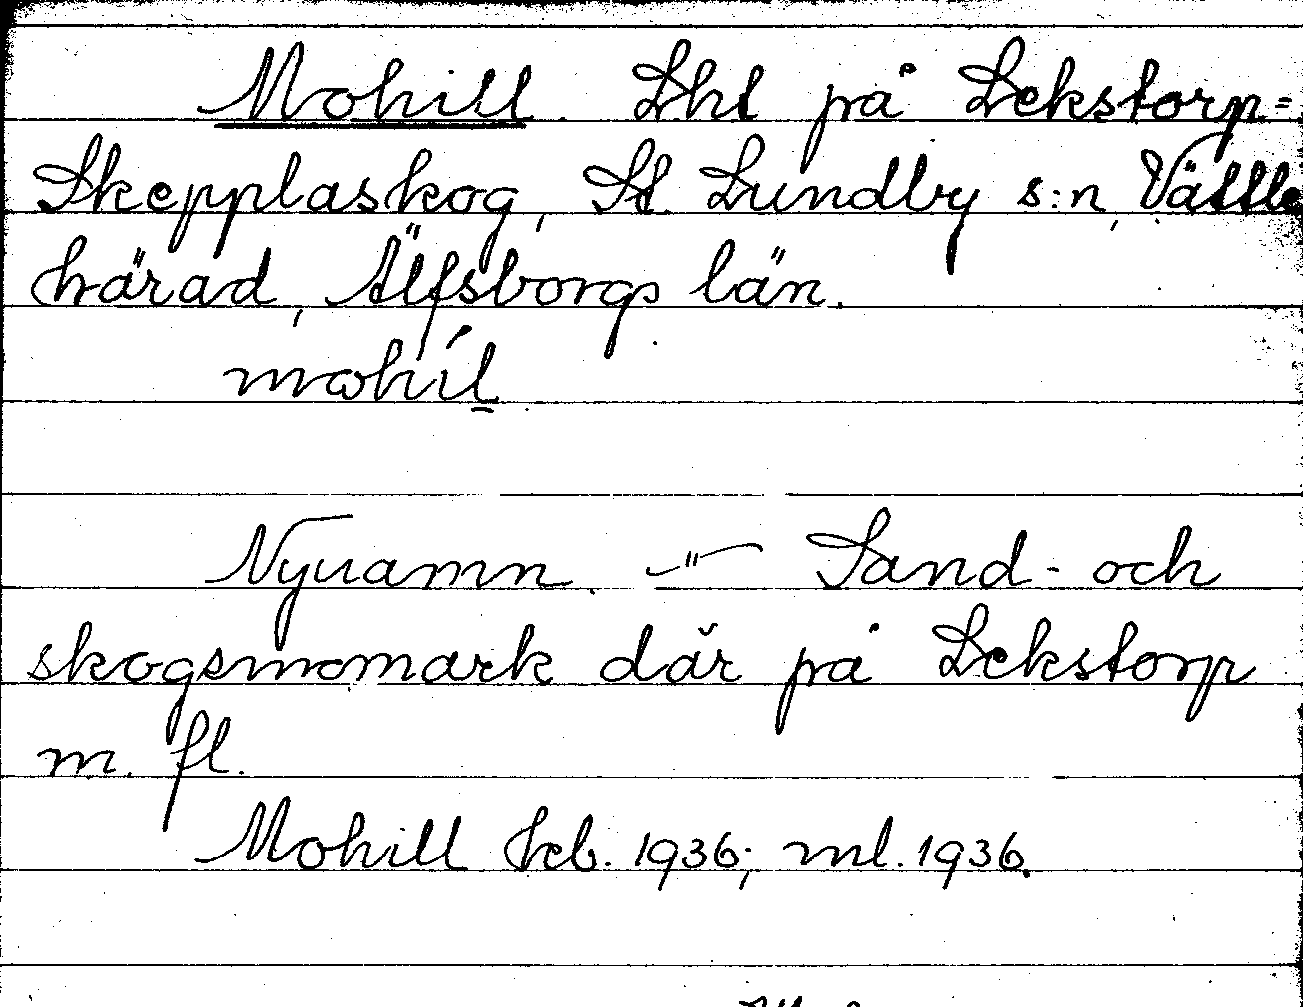 Mohill. Lht på Lekstorp=
Skepplaskog, St. Lundby s:n, Vättle
härad, Älfsborgs län.
mohíl
Nynamn. –"– Sand- och
skogsmomark där på Lekstorp
m. fl.
Mohill kb. 1936; ml. 1936.